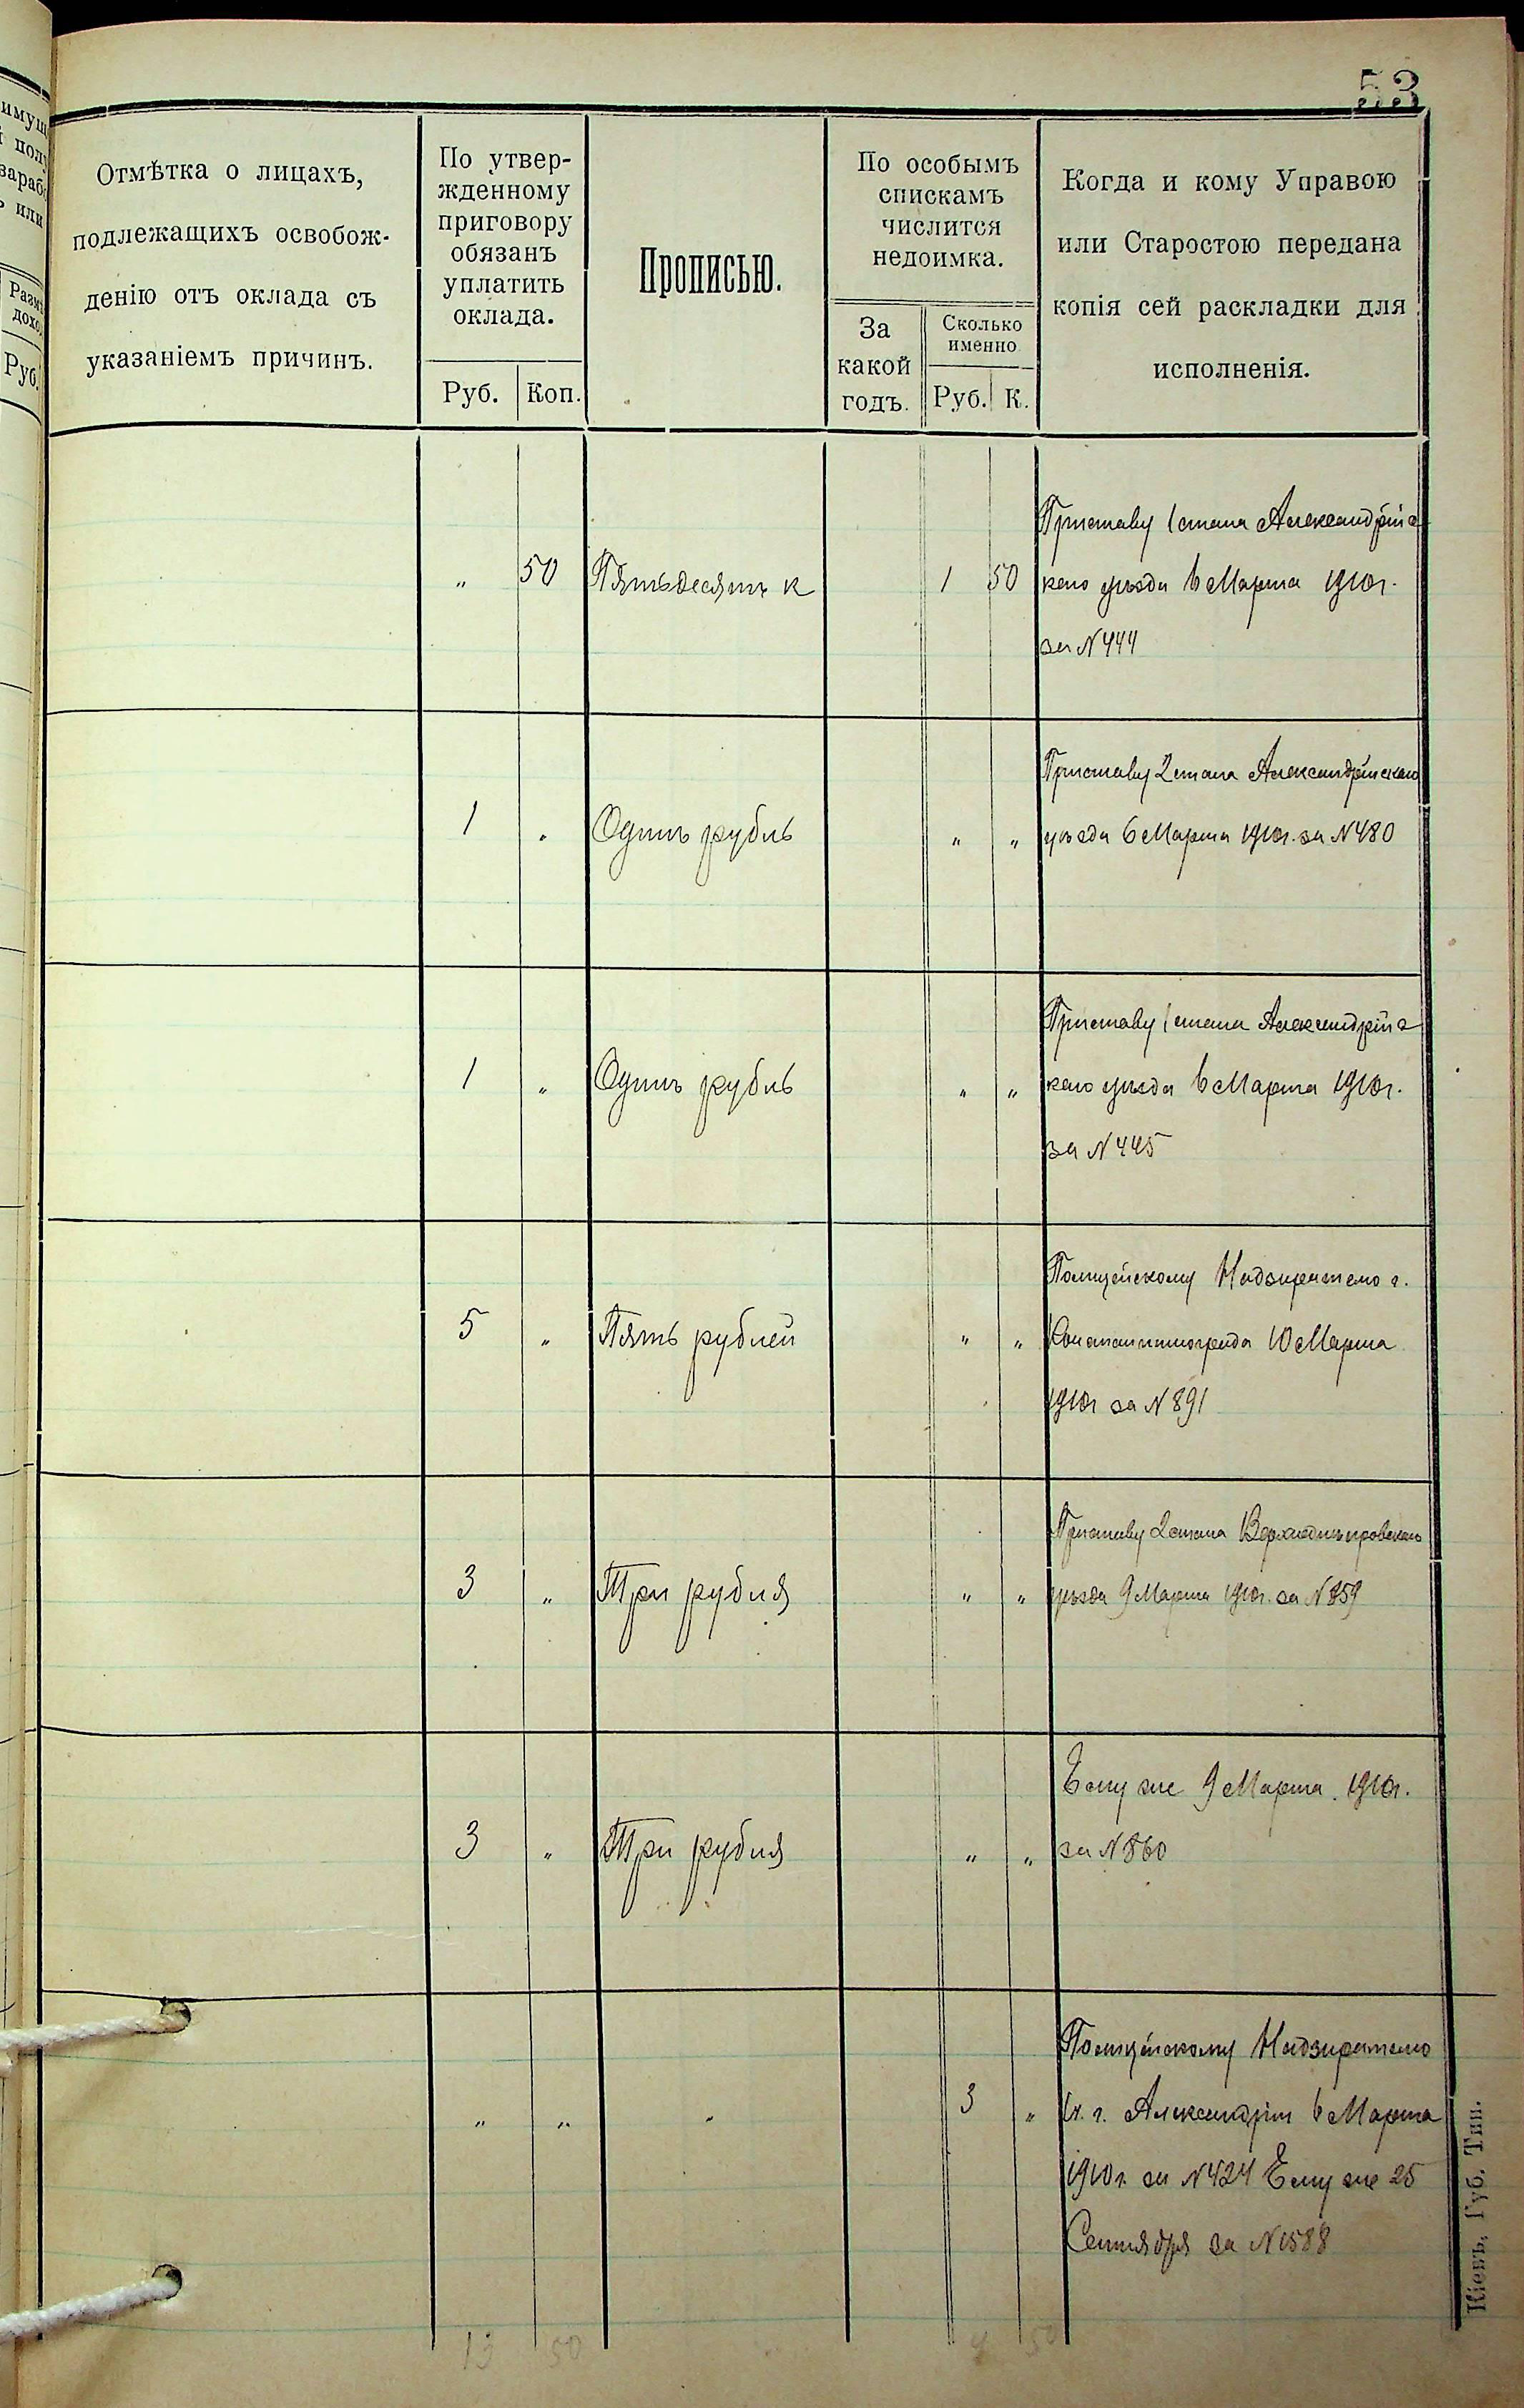 53
имущ
Руб.
Отмѣтка о лицахъ,
подлежащихъ освобож-
денію отъ оклада съ
указаніемъ причинъ.
По утвер-
жденному
приговору
обязанъ
уплатить
оклада.
Руб.
Коп.
Прописью.
По особымъ
спискамъ
числится
недоимка.
За
какой
годъ.
Сколько
именно
Руб.
К.
Когда и кому Управою
или Старостою передана
копія сей раскладки для
исполненія.
" 50 Пятьдесятъ к 1 50
Приставу 1 стана Александрійс
каго уѣзда 6 Марта 1910г.
за N 444
1 " Одинъ рубль " "
Приставу 2 стана Александрійскаго
уѣзда 6 Марта 1910г. за N 480
1 " Одинъ рубль " "
Приставу 1 стана Александрійс
каго уѣзда 6 Марта 1910г.
за N 445
5 " Пять рублей " "
Полицейскому Надзирателю г.
Константинограда 10 Марта
1910г за N 891
3 " Три рубля " "
Приставу 2 стана Верхнеднѣпровскаго
уѣзда 9 Марта 1910г. за N 859
3 " Три рубля " "
Ему же 9 Марта 1910г.
за N 860
" " " 3 "
Полицейскому Надзирателю
г. Александріи 6 Марта
1910г. за N 424 Ему же 25
Сентября за N 1588
13 50 4 50
Кіевъ, Губ. Тип.